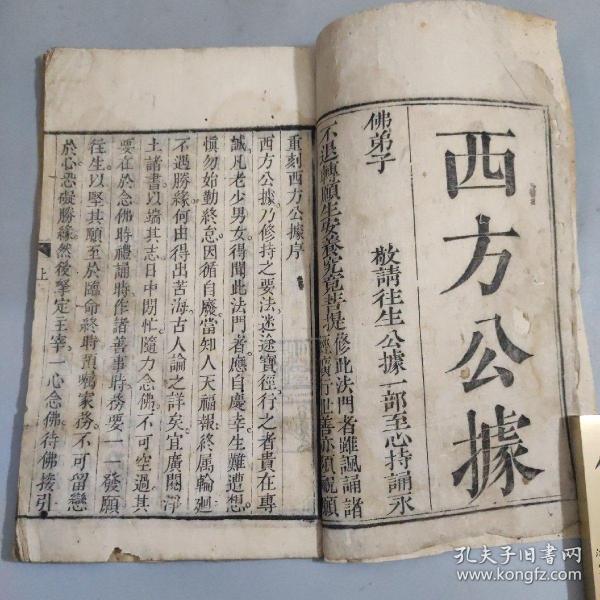 西方公據
佛弟子　敬請往生公據一部至心持誦永
不退轉願生安養究竟菩提修此法門者雖諷誦諸
重刻西方公據序
西方公據乃修持之要法迷途寶徑行之者貴在專
誠凡老少男女得聞此法門者應自慶幸生難遭想
慎勿始勤終怠因循自廢當知人天福報終屬輪廻
不遇勝緣何由得出苦海古人論之詳矣宜廣閱淨
土諸書以端其志日中閒忙隨力念佛不可空過其
要在於念佛時禮誦時作諸善事時務要一一發願
往生以堅其願至於臨命終時預囑家務不可留戀
於心恐礙勝緣然後堅定主宰一心念佛待佛接引
上
孔夫子旧书网
www.kongfz.com